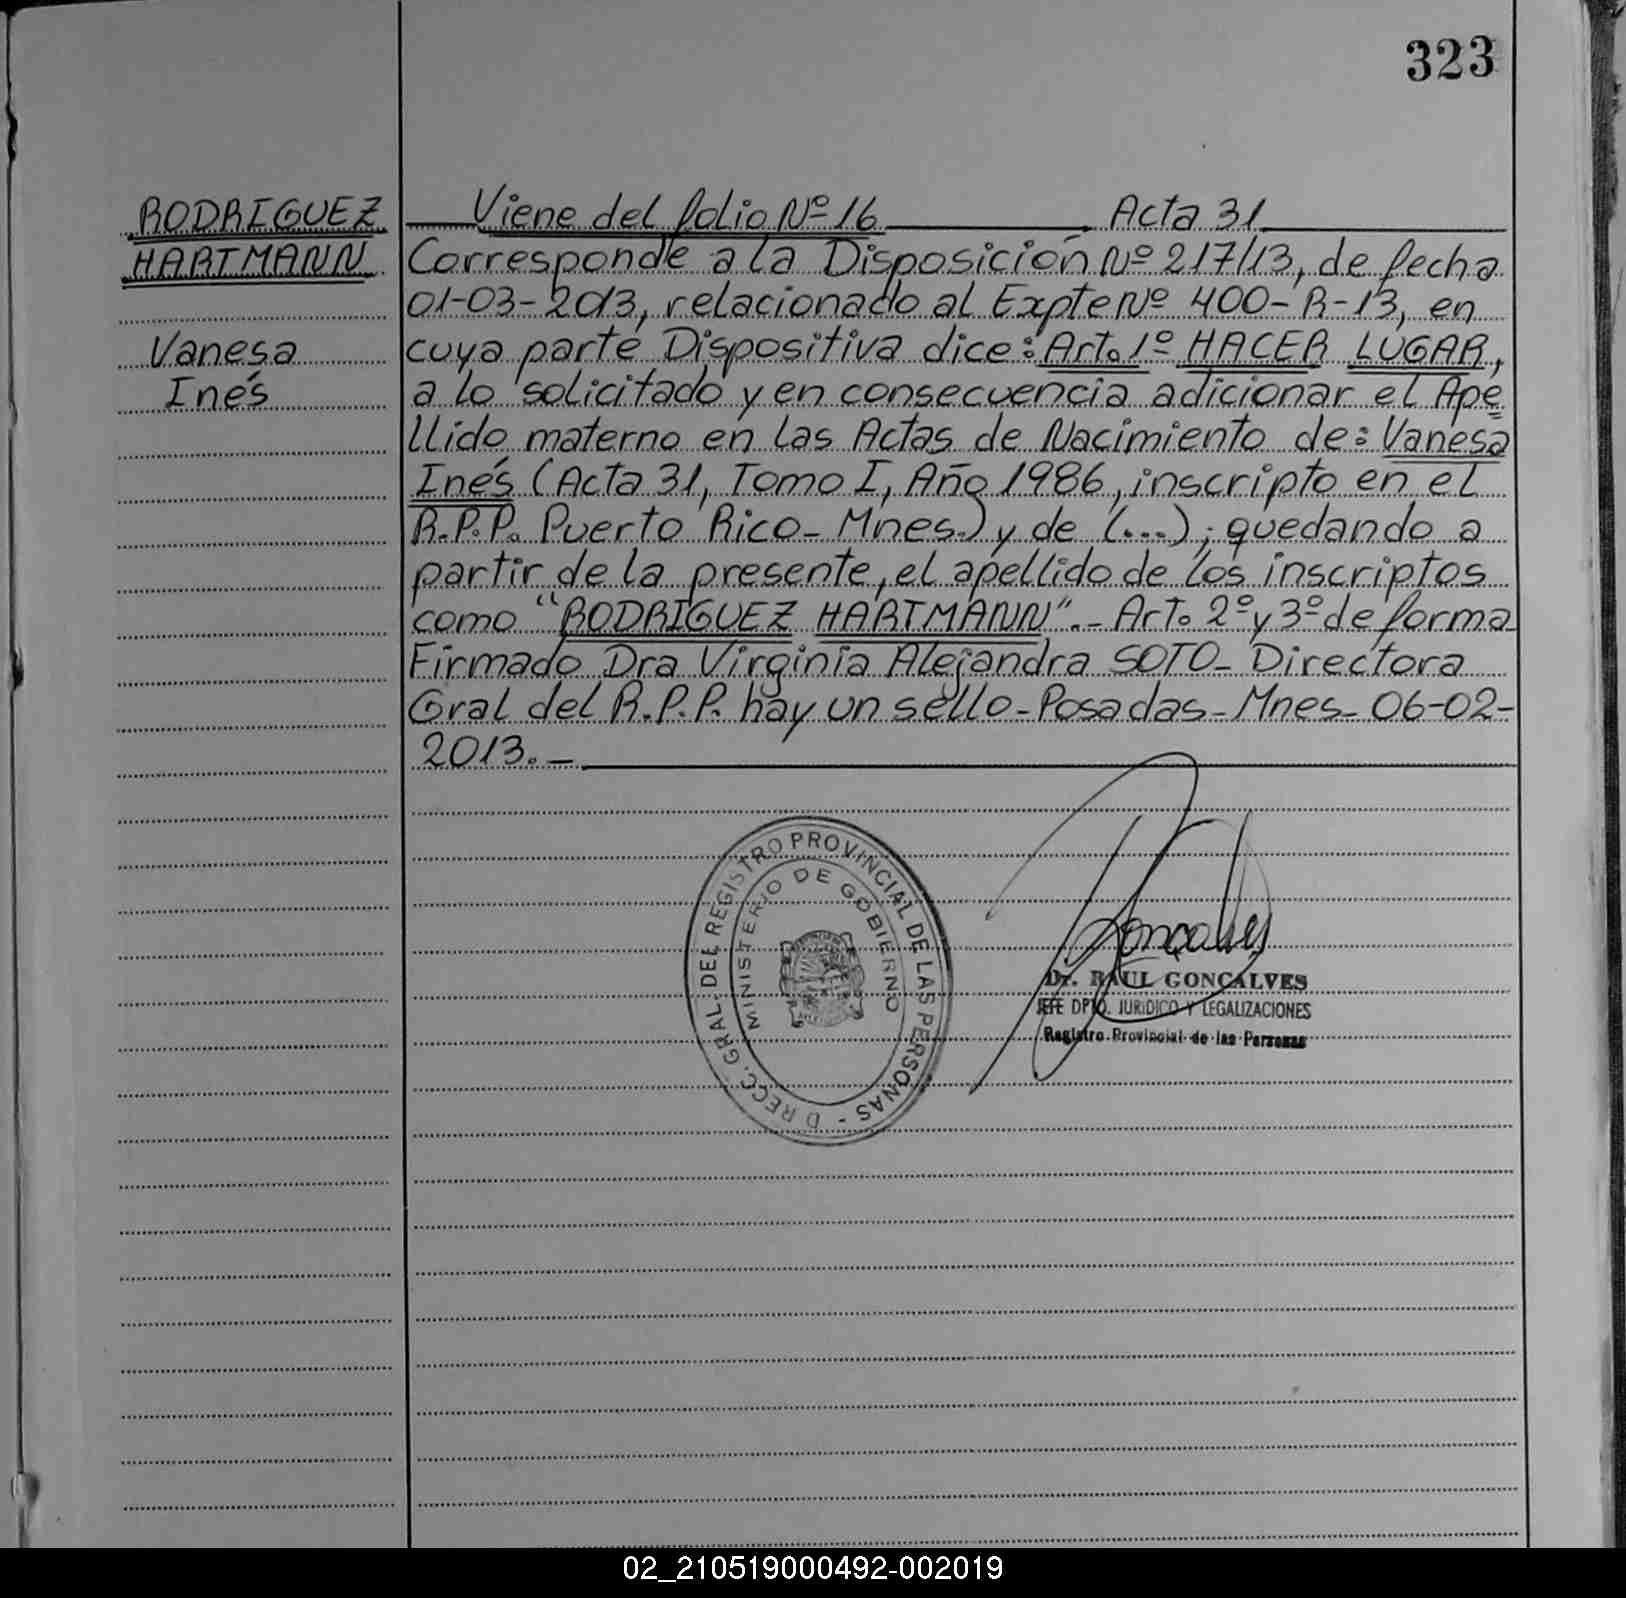 323
RODRIGUEZ
HARTMANN
Vanesa
Inés
Viene del folio Nº 16 Acta 31
Corresponde a la Disposición Nº 217/13, de fecha
01-03-2013, relacionado al Expte Nº 400-R-13, en
cuya parte Dispositiva dice: Art. 1º HACER LUGAR,
a lo solicitado y en consecuencia adicionar el Ape
llido materno en las Actas de Nacimiento de: Vanesa
Inés (Acta 31, Tomo I, Año 1986, inscripto en el
R.P.P. Puerto Rico-Mnes.) y de (...); quedando a
partir de la presente, el apellido de los inscriptos
como "RODRIGUEZ HARTMANN".- Art. 2º y 3º de forma
Firmado Dra Virginia Alejandra SOTO- Directora
Gral del R.P.P. hay un sello-Posadas-Mnes-06-02-
2013.-
DIRECC. GRAL. DEL REGISTRO PROVINCIAL DE LAS PERSONAS -
MINISTERIO DE GOBIERNO
Goncalves
Dr. RAUL GONCALVES
JEFE DPTO. JURIDICO Y LEGALIZACIONES
Registro Provincial de las Personas
02_210519000492-002019